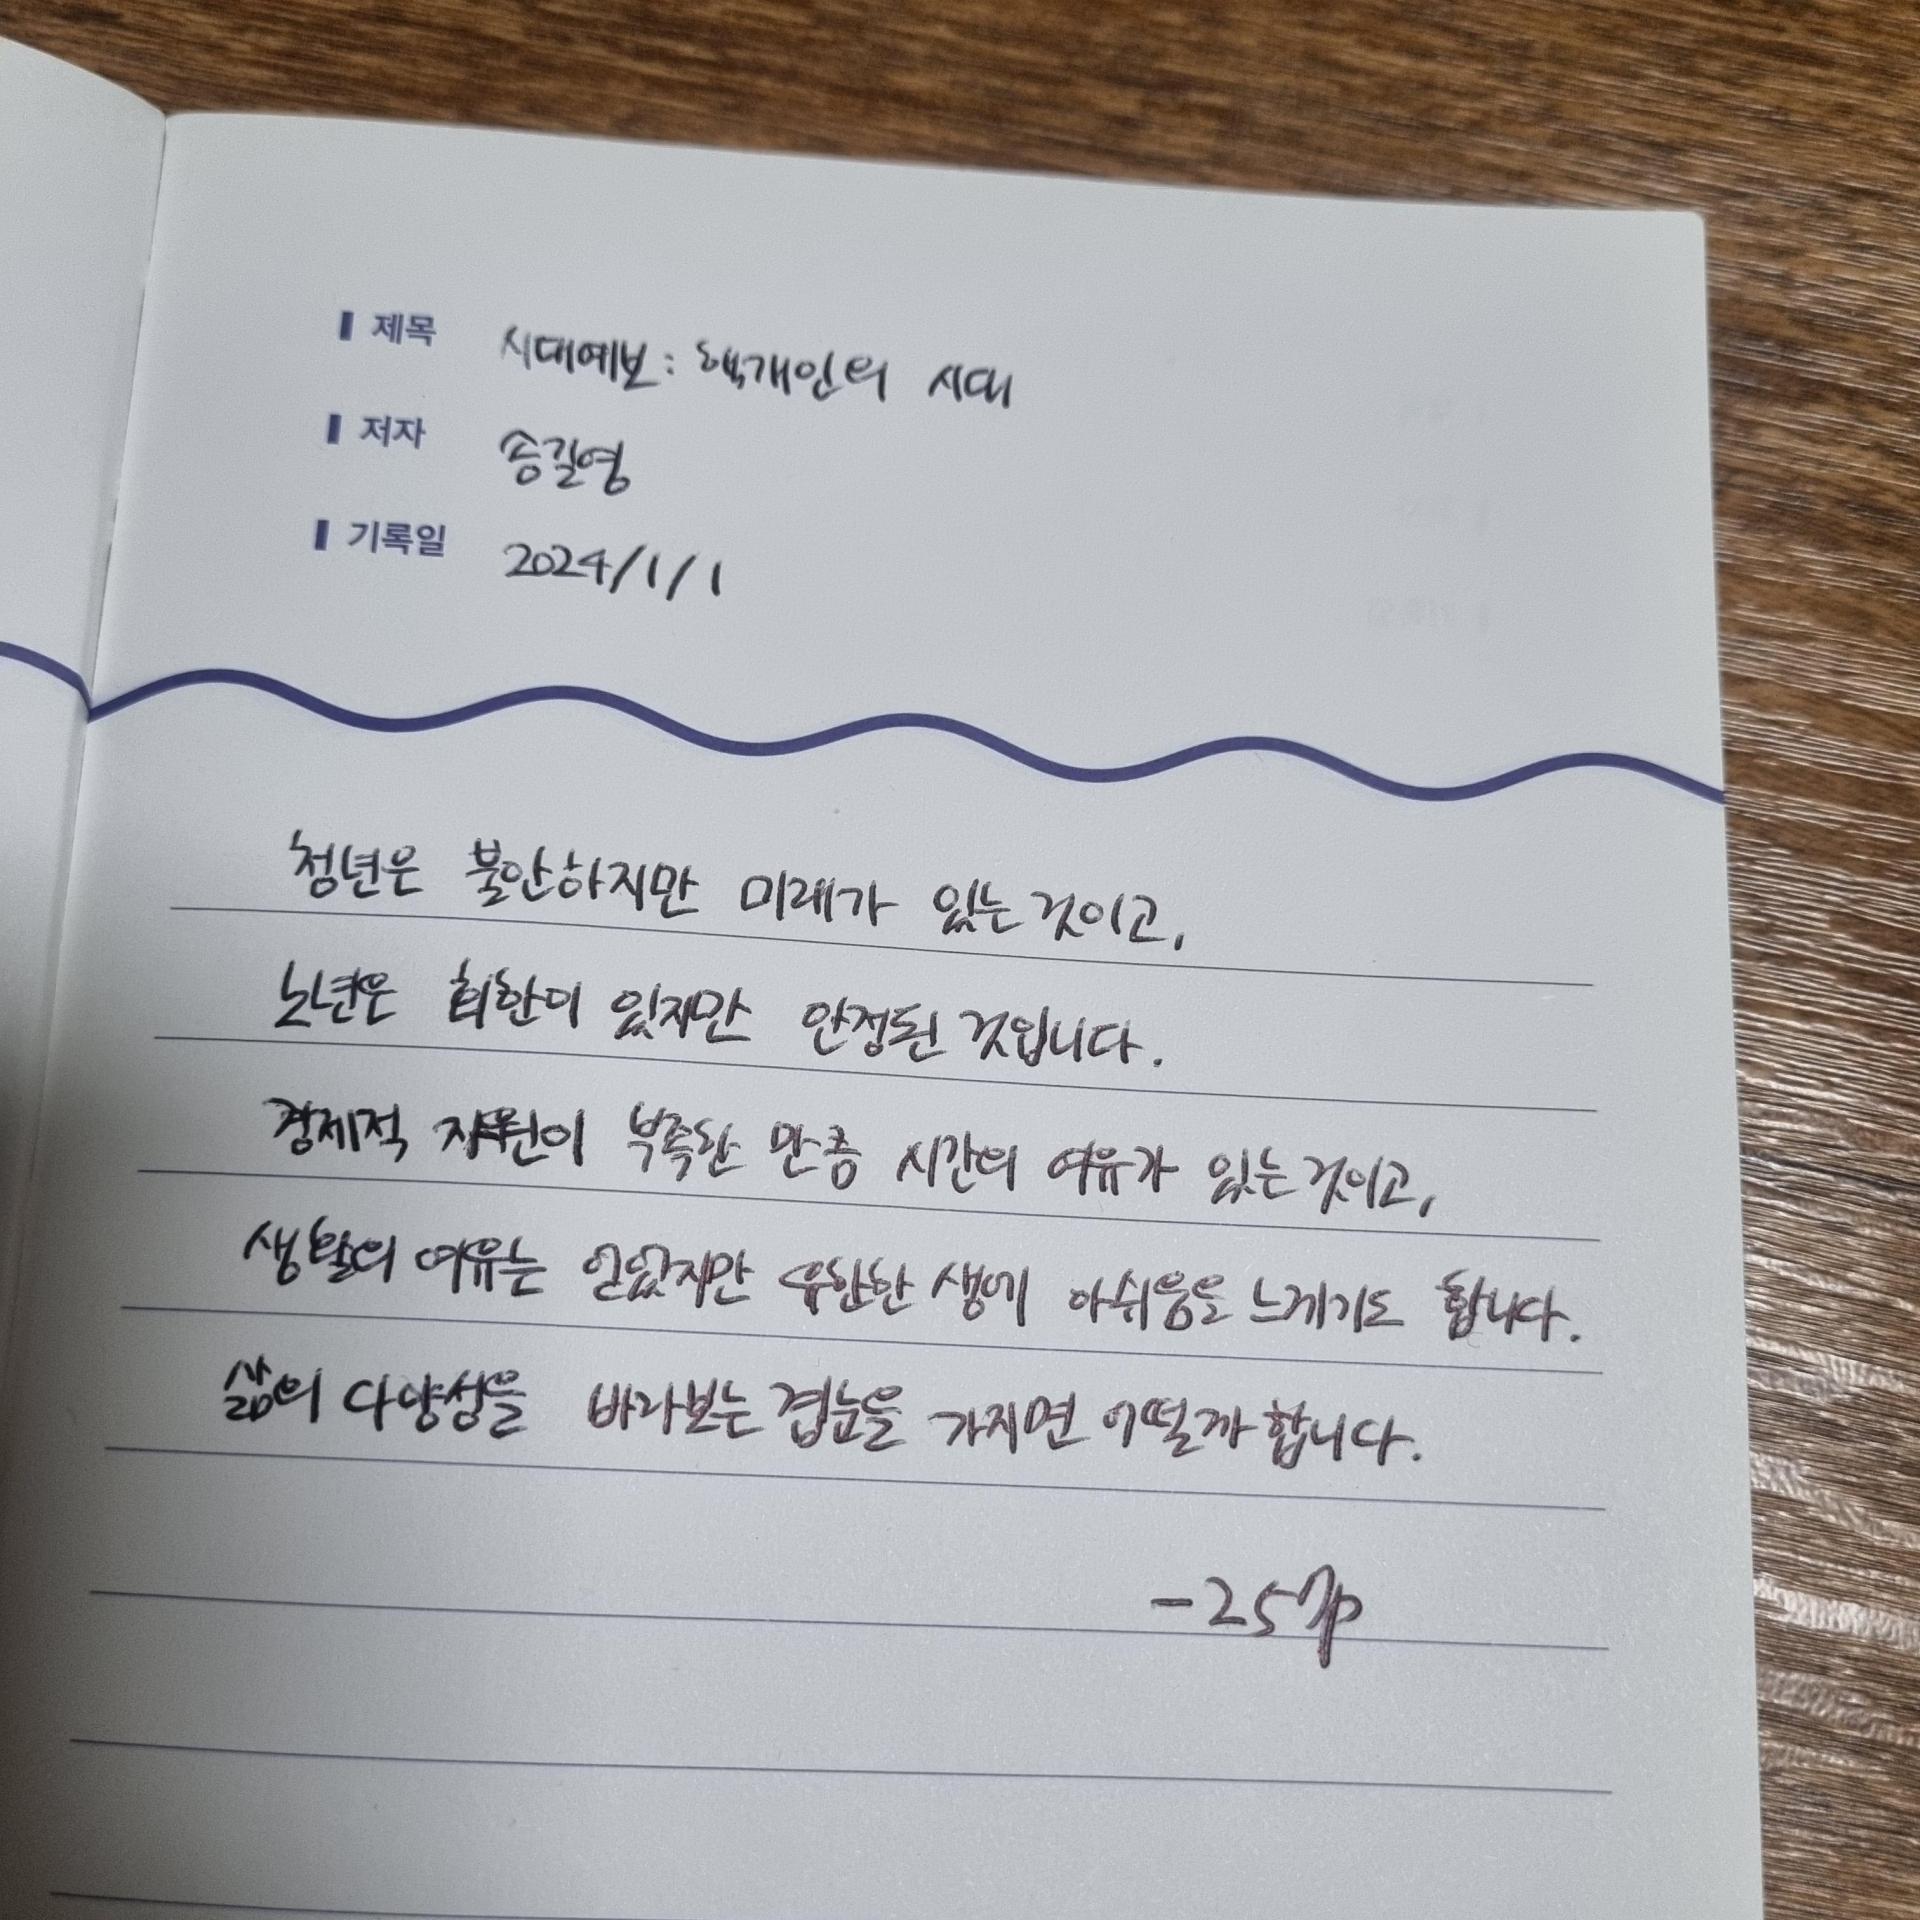 제목 시대예보: 핵개인의 시대
저자 송길영
기록일 2024/1/1
청년은 불안하지만 미래가 있는 것이고,
노년은 회한이 있지만 안정된 것입니다.
경제적 자원이 부족한 만큼 시간의 여유가 있는 것이고,
생활의 여유는 얻었지만 유한한 생에 아쉬움을 느끼기도 합니다.
삶의 다양성을 바라보는 겹눈을 가지면 어떨까 합니다.